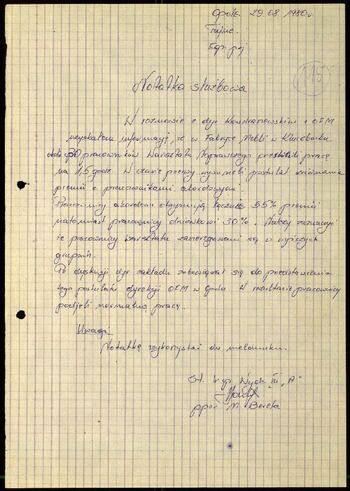 Opole 29.08 1980r.
Tajne
Egz. poj
115
Notatka służbowa
W rozmowie z dyr. z OFM
uzyskałem informację, że w Fabryce Mebli w Kluczborku
około 30 pracowników Warsztatu przerwało pracę
na 1,5 godz. W czasie przerwy wysuneli postulat zrównania
premii z pracownikami akordowymi.
Pracownicy akordowi otrzymują 55% premii
natomiast pracownicy dniówkowi 30%. Należy zaznaczyć
że pracownicy warsztatu zaszeregowani są w wyższych
grupach.
Po dyskusji dyr zakładu zobowiązał się do przedstawienia
tego postulatu dyrekcji OFM w Opolu W rezultacie pracownicy
podjęli normalną pracę.
Uwaga
Notatkę wykorzystać do meldunku.
St. Insp. Wydz. III "A"
ppor. M.